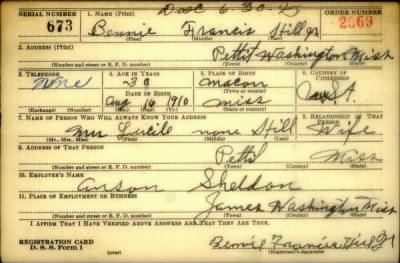 SERIAL NUMBER
1. NAME (Print)
ORDER NUMBER
673
Bennie Francis Still Jr
2369
(First) (Middle) (Last)
2. ADDRESS (Print)
Pettit Washington Miss
(Number and street or R. F. D. number) (Town) (County) (State)
3. TELEPHONE
4. AGE IN YEARS
5. PLACE OF BIRTH
6. COUNTRY OF CITIZENSHIP
None
Macon
DATE OF BIRTH
(Town or county)
U.S.A.
Aug 16 1910
Miss
(Exchange) (Number)
(Mo.) (Day) (Yr.)
(State or country)
7. NAME OF PERSON WHO WILL ALWAYS KNOW YOUR ADDRESS
8. RELATIONSHIP OF THAT PERSON
Mrs Lucile none Still
Wife
(Mr., Mrs., Miss) (First) (Middle) (Last)
9. ADDRESS OF THAT PERSON
Pettit Miss
(Number and street or R. F. D. number) (Town) (County) (State)
10. EMPLOYER'S NAME
Anson Sheldon
11. PLACE OF EMPLOYMENT OR BUSINESS
James Washington Miss
(Number and street or R. F. D. number) (Town) (County) (State)
I AFFIRM THAT I HAVE VERIFIED ABOVE ANSWERS AND THAT THEY ARE TRUE.
REGISTRATION CARD
D. S. S. Form 1
Bennie Francis Still Jr
(Registrant's signature)